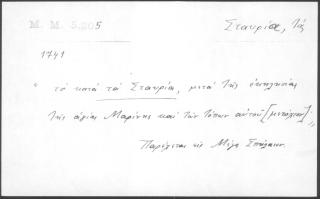 M. M. 5.205
Σταυρία, τά
1741
"τό κατά τά Σταυρία, μετά τῆς ἐκκλησίας
τῆς ἁγίας Μαρίνης καί τῶν τόπων αὐτοῦ [μετόχιον]"
Παρέχεται εἰς Μέγα Σπήλαιον.